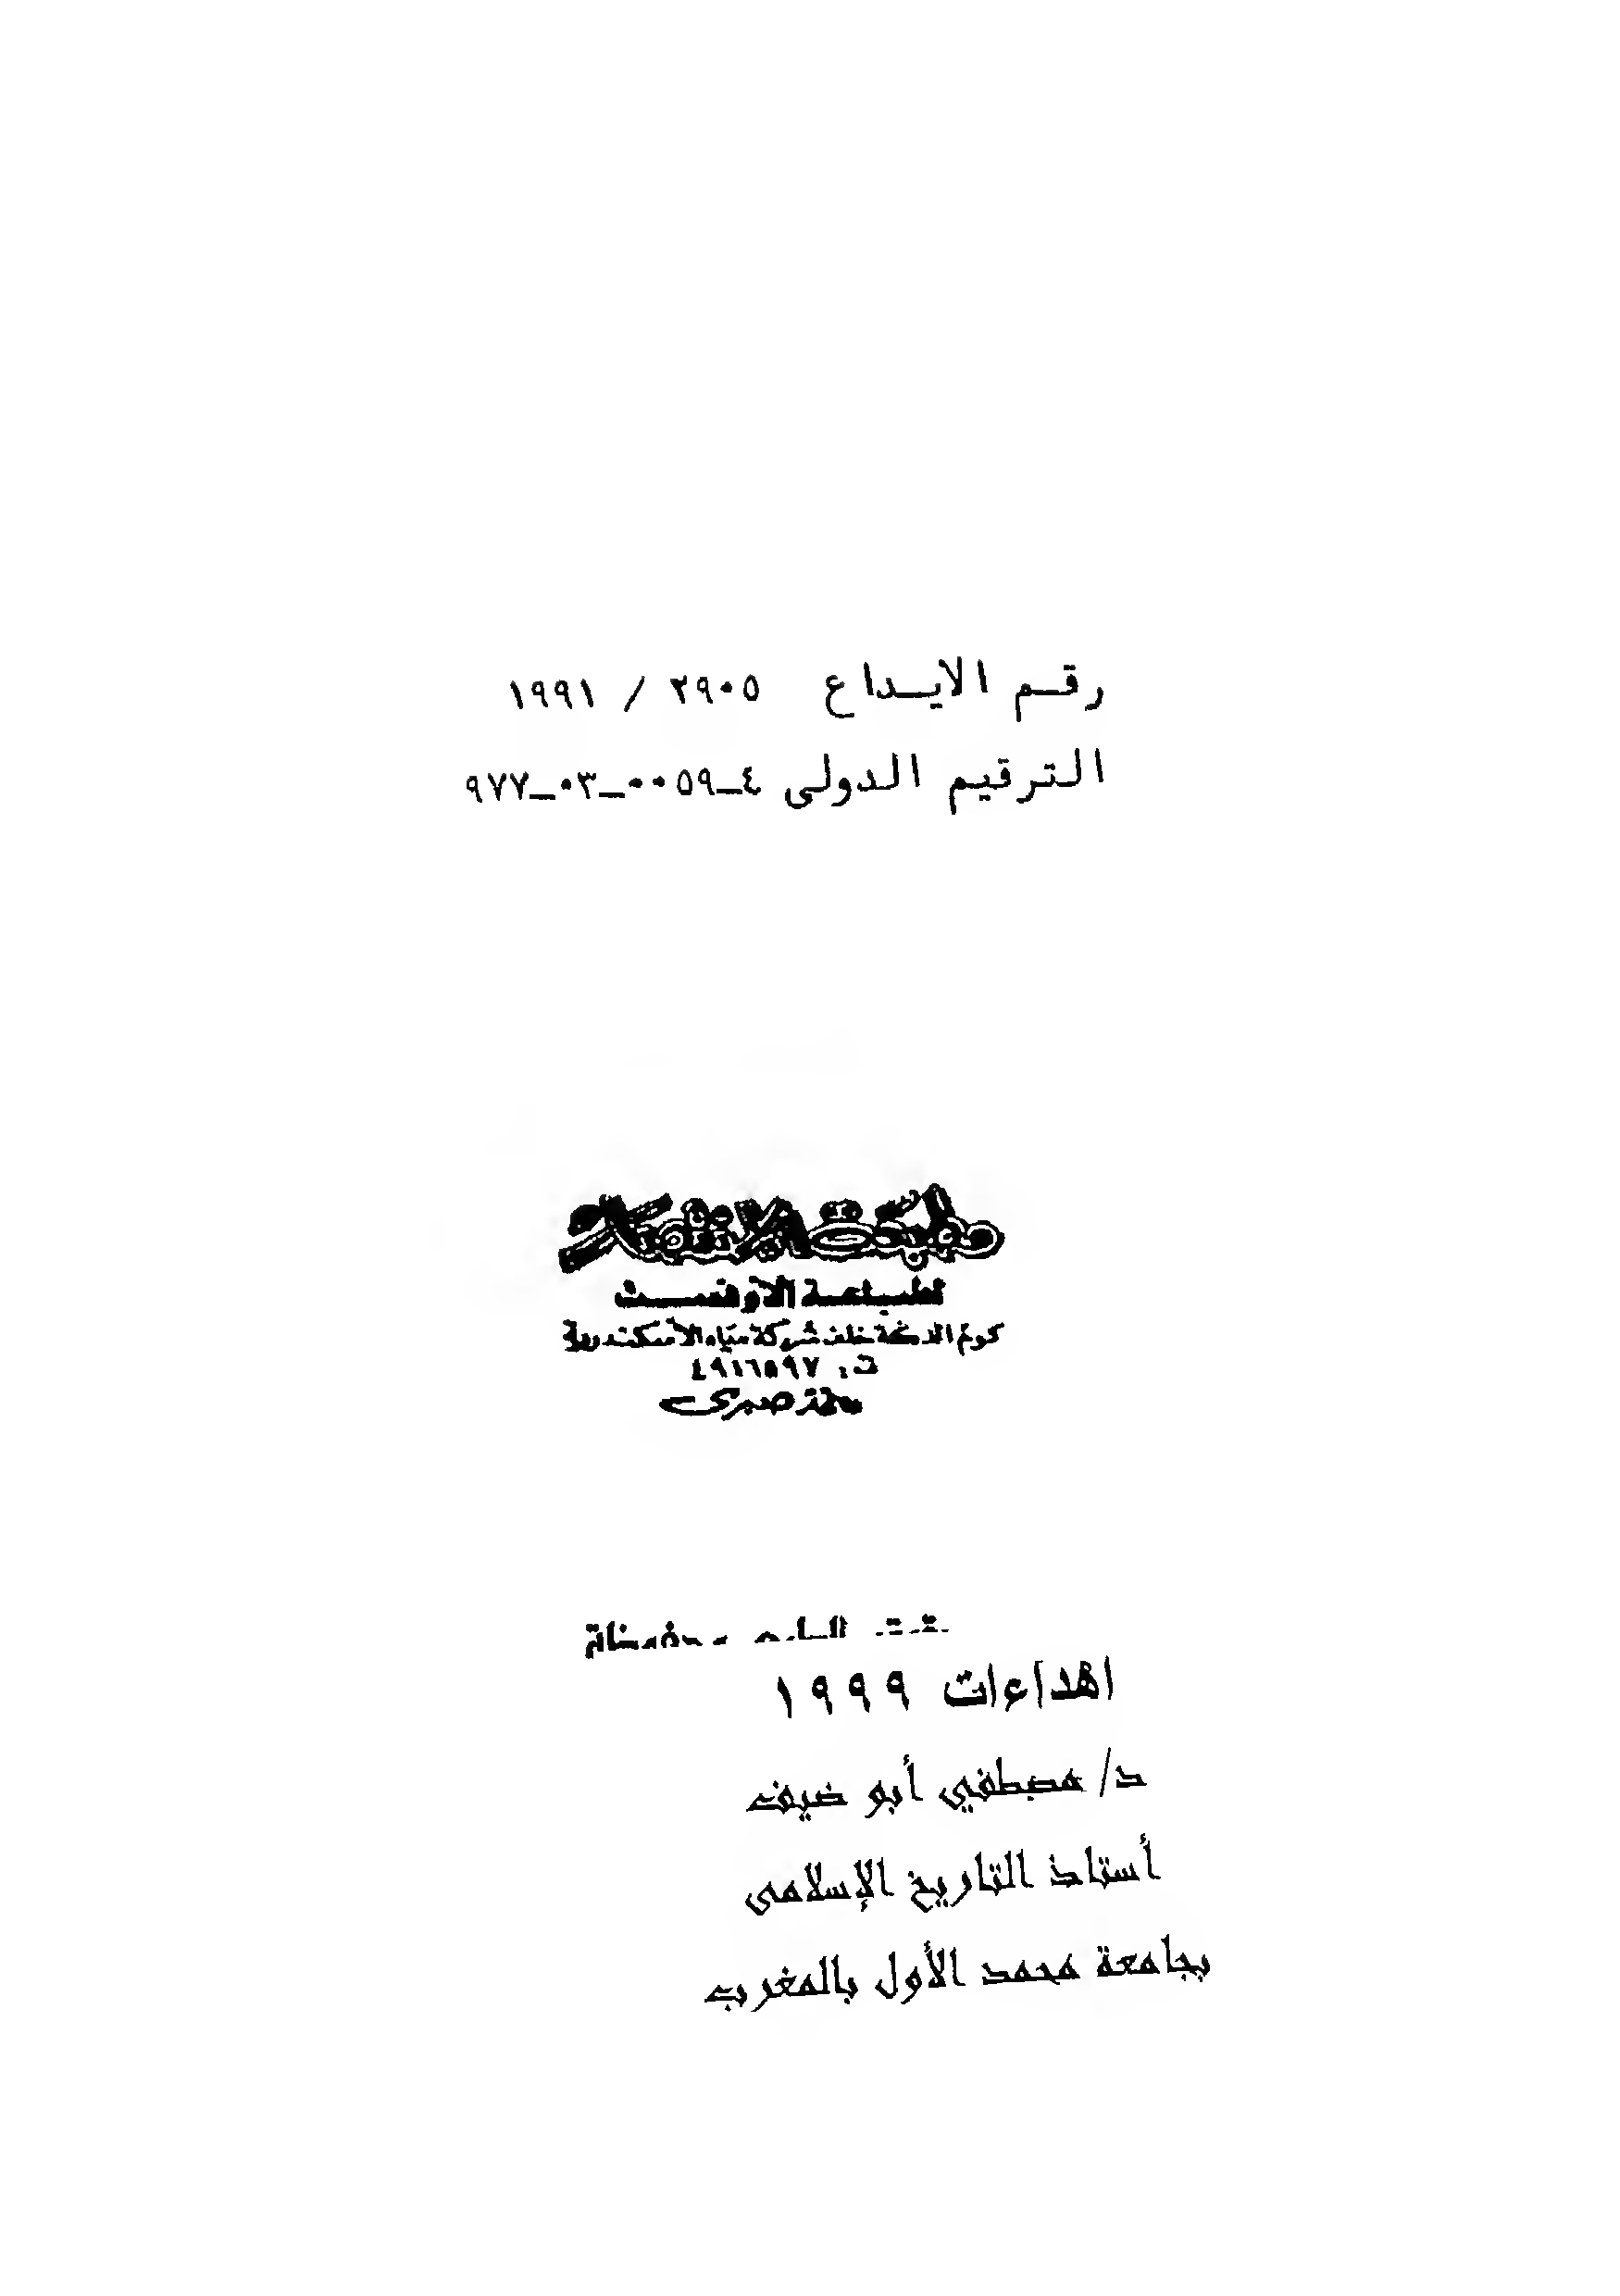 رقم الايداع ٢٩٠٥ / ١٩٩١
الترقيم الدولى ٤ـ٠٠٥٩ـ٠٣ـ٩٧٧
مطبعة الانتصار
لطباعة الأوفست
كوم الدكة خلف شركة مياه الاسكندرية
ت: ٤٩١٦٥٩٧
صبرى
حقوق
اهداءات ١٩٩٩
د/ مصطفي أبو ضيف
أستاذ التاريخ الإسلامى
بجامعة محمد الأول بالمغرب